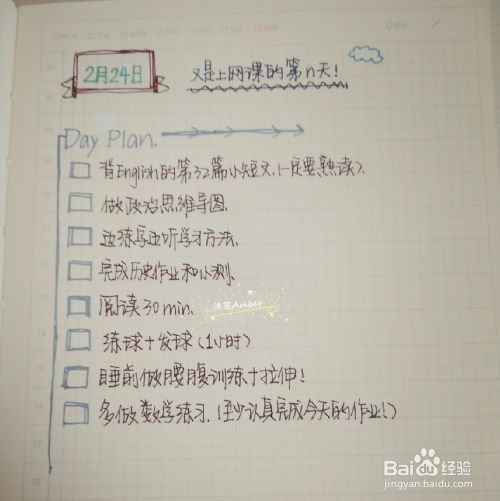 MON TUE WED THU FRI SAT SUN Date /
2月24日
又是上网课的第n天!
Day Plan.
背English的第32篇小短文.(一定要熟读).
做政治思维导图.
边练写边听学习方法.
完成历史作业和小测.
阅读30min.
沐笙Amber
练球+发球(1小时)
睡前做腰腹训练+拉伸!
多做数学练习.(至少认真完成今天的作业!)
Baidu经验
jingyan.baidu.com